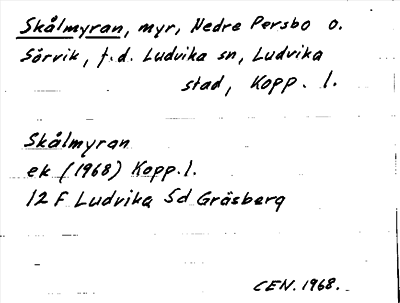 Skålmyran, myr, Nedre Persbo o.
Sörvik, f.d. Ludvika sn, Ludvika
stad, Kopp. l.
Skålmyran
ek (1968) Kopp. l.
12 F Ludvika Sd Gräsberg
CEN. 1968.